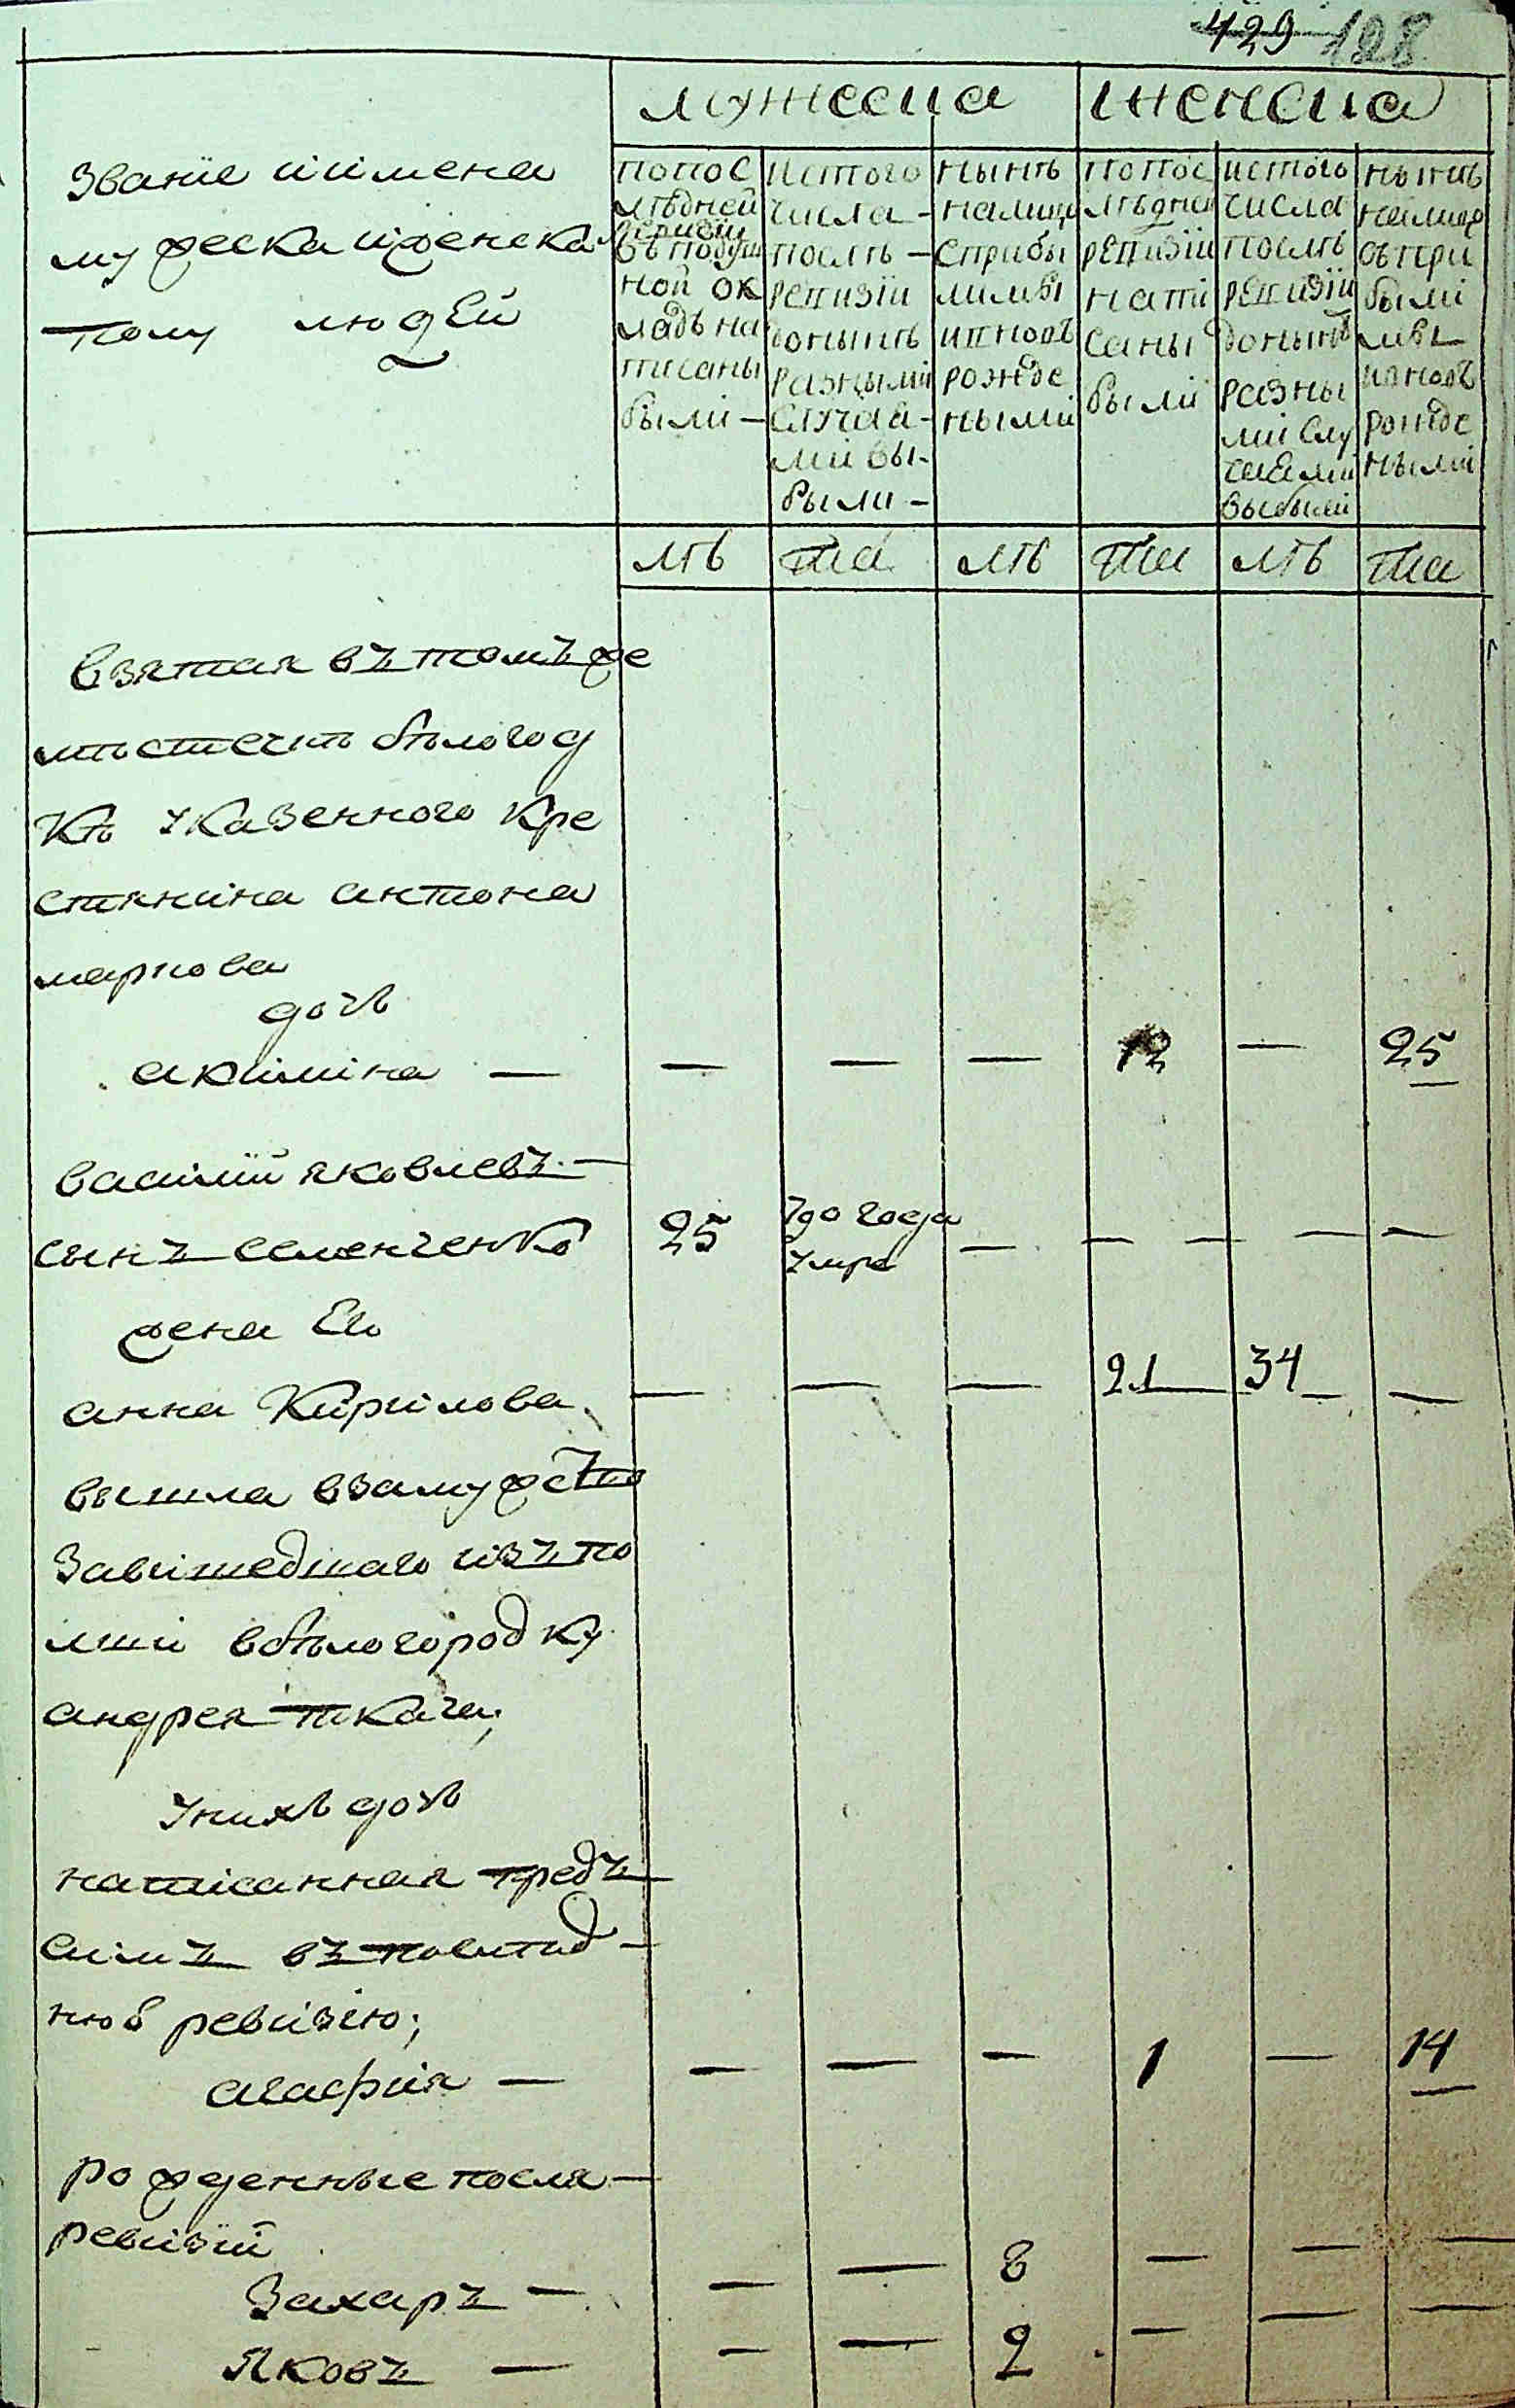 429 128
мужеска женска
Званïе иимена
мужеска иженска
полу людей
попос
лѣдней
ревизïи
въ подуш
ной ок
ладъ на
писаны
были —
истого
числа —
послѣ —
ревизïи
донынѣ
разными
случаа-
ми вы-
были —
нынѣ
налицо
сприбы
лыми
ивновъ
рожде
ными
попос
лѣдней
ревизïи
напи
саны
были
истого
числа
послѣ
ревизïи
донынѣ
разны
ми слу
чаями
выбыли
нынѣ
налицо
съпри
былы
ми
ивновъ
рожде
ными
лѣ та лѣ та лѣ та
взятая въ томъ же
мѣстечкѣ бѣлогод
кѣ указенного кре
стянина антона
маркова
дочь
акилина — — — — 12 — 25
василий яковлевъ —
сынъ семенченко 25 790 года — — — — —
умре
жена Ево
анна Кирилова — — — 21 34 —
вышла взамужство
Завишедшаго изъ по
лши вбѣлогородку
андрея ткача;
унихъ дочь
написанная предъ
симъ въ послѣд —
нюю ревизïю;
агафия — — — — 1 — 14
рожденные посля —
ревизïй
Захаръ — — — 8 — — —
Яковъ — — — 2 — — —